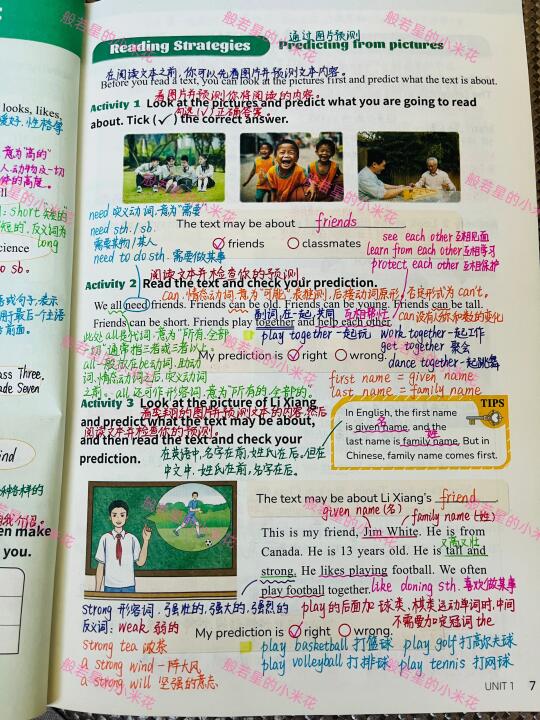 Reading Strategies
通过图片预测
Predicting from pictures
在阅读文本之前,你可以先看图片并预测文本内容。
Before you read a text, you can look at the pictures first and predict what the text is about.
看图片并预测你将阅读的内容。
Activity 1 Look at the pictures and predict what you are going to read
about. Tick (✓) the correct answer.
勾选(✓)正确答案。
need 实义动词,意为"需要"
need sth./sb.
需要某物/某人
need to do sth. 需要做某事
The text may be about friends
friends
classmates
see each other 互相见面
learn from each other 互相学习
protect each other 互相保护
阅读文本并检查你的预测
Activity 2 Read the text and check your prediction.
Can,情态动词,意为"可能",表推测,后接动词原形,否定形式为 can't。
We all need friends. Friends can be old. Friends can be young. Friends can be tall.
副词,在一起,共同
互相帮忙
can没有人称和数的变化
Friends can be short. Friends play together and help each other.
play together 一起玩
work together 一起工作
get together 聚会
dance together 一起跳舞
此处all是代词,意为"所有,全部
一切",通常指三者或三者以上
all一般放在be动词,助动
词,情态动词之后,实义动词
之前。all还可作形容词,意为"所有的,全部的。
My prediction is
right
wrong.
first name = given name
last name = family name
Activity 3 Look at the picture of Li Xiang
看李翔的图片并预测文本的内容,然后
and predict what the text may be about,
阅读文本并检查你的预测。
and then read the text and check your
prediction.
在英语中,名字在前,姓氏在后。但在
中文中,姓氏在前,名字在后。
TIPS
In English, the first name
名
is given name, and the
姓
last name is family name. But in
Chinese, family name comes first.
The text may be about Li Xiang's friend
given name (名)
family name (姓)
This is my friend, Jim White. He is from
又高又壮
Canada. He is 13 years old. He is tall and
strong. He likes playing football. We often
play football together.
like doning sth. 喜欢做某事
strong 形容词,强壮的,强大的,强烈的
反义词: weak 弱的
strong tea 浓茶
a strong wind 一阵大风
a strong will 坚强的意志
play 的后面加球类、棋类运动单词时,中间
不需要加定冠词 the
My prediction is
right
wrong.
play basketball 打篮球
play golf 打高尔夫球
play volleyball 打排球
play tennis 打网球
UNIT 1 7
looks, likes,
爱好,性格等
意为"高的"
short
long
cience
to sb.
ass Three,
ade Seven
ind
en make
you.
般若星的小米花